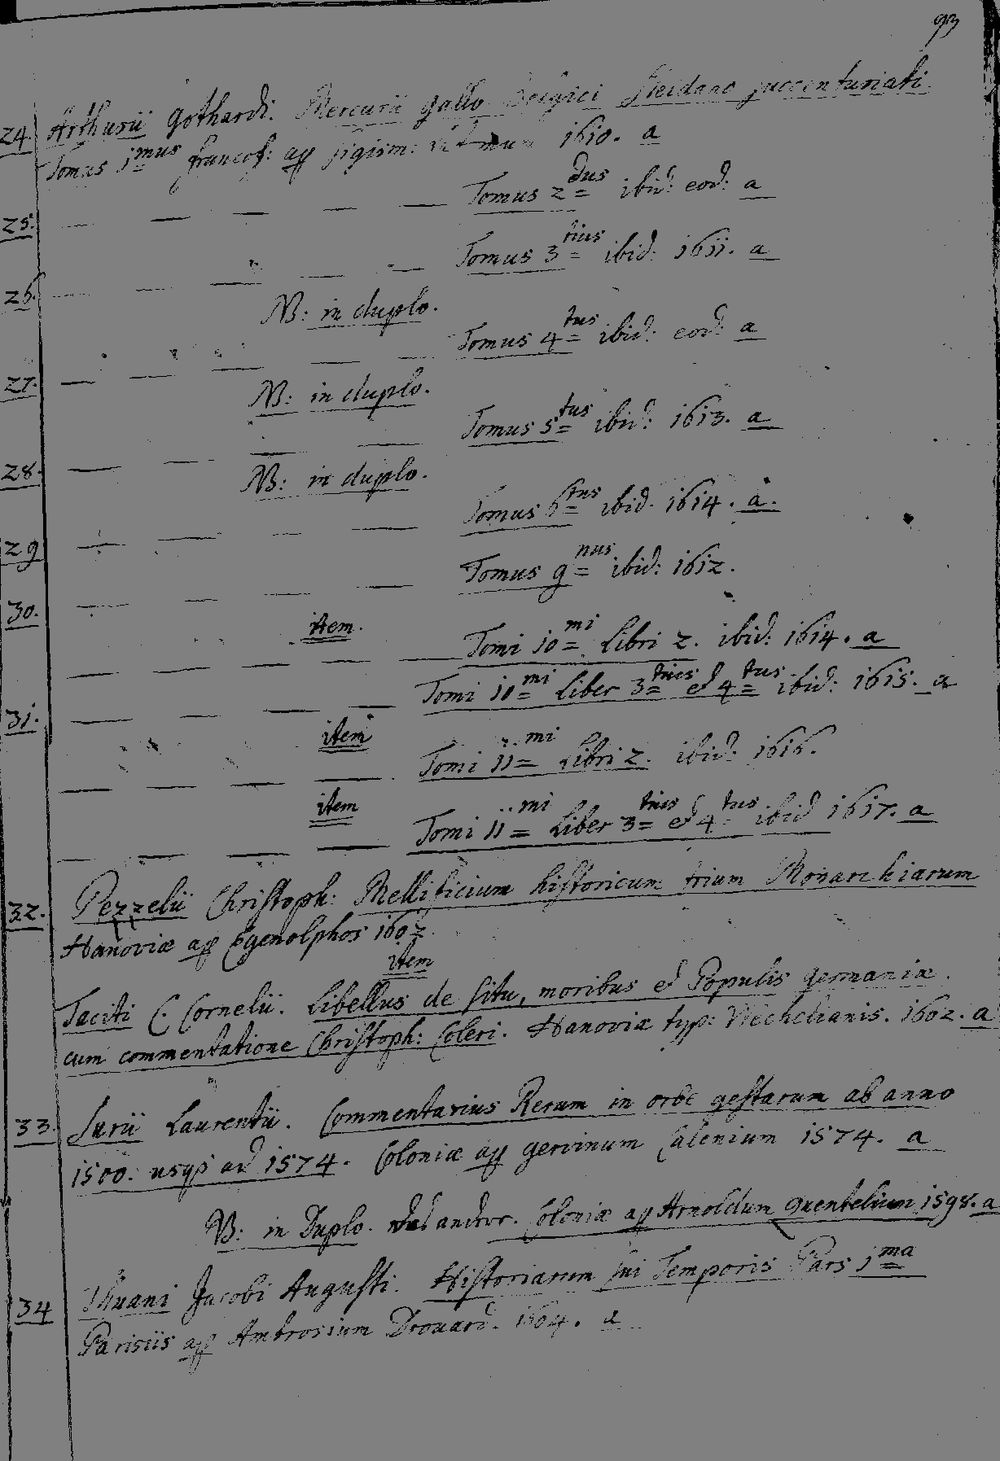 93
24. Arthurii Gothardi. Mercurii Gallo Belgici Sleidano succenturiati
Tomus 1mus francof: ap sigism: 1610. a
25. Tomus 2dus ibid: eod: a
26. Tomus 3tius ibid: 1611. a
NB: in duplo.
27. Tomus 4tus ibid: eod: a
NB: in duplo.
28. Tomus 5tus ibid: 1613. a
NB: in duplo.
29 Tomus 6tus ibid. 1614. a.
30. Tomus 9nus ibid: 1612.
item.
Tomi 10mi Libri 2. ibid: 1614. a
31. Tomi 10mi Liber 3tius et 4tus ibid: 1615. a
item
Tomi 11mi Libri 2. ibid: 1616.
item
Tomi 11mi Liber 3tius et 4tus ibid 1617. a
32. Pezzelii Christoph: Mellificium historicum trium Monarchiarum
Hanoviæ ap Egenolphos 1602
item
Taciti C. Cornelii. Libellus de situ, moribus et Populis germaniæ.
cum commentatione Christoph: Coleri. Hanoviæ typ: Wechelianis. 1602. a
33. Surii Laurentii. Commentarius Rerum in orbe gestarum ab anno
1500. usq ad 1574. Coloniæ ap gervinum Calenium 1574. a
NB: in Duplo. Coloniæ ap Arnoldum Quentelium 1598. a
34 Thuani Jacobi Augusti. Historiarum sui Temporis Pars 1ma
Parisiis ap Ambrosium Drouard. 1604. a